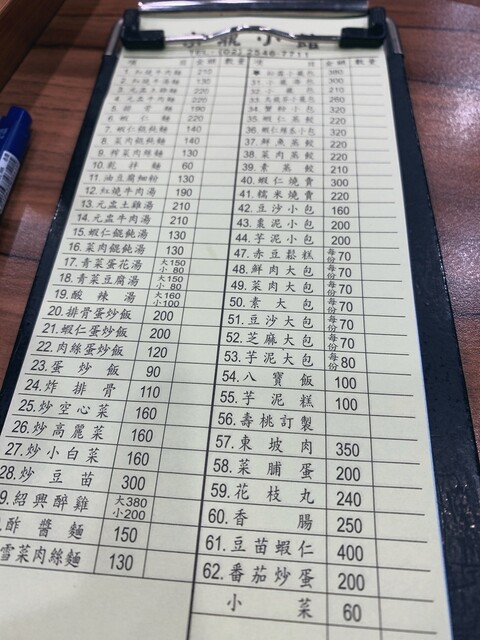 小館
TEL:(02)2546-7711
項 目 金額 數量
1.紅燒牛肉麵 210
2.紅燒牛湯麵 130
3.元盅土雞麵 220
4.元盅牛肉麵 220
190
6.蝦仁麵 220
7.蝦仁餛飩麵 140
8.菜肉餛飩麵 140
9.榨菜肉絲麵 130
10.乾拌麵 60
11.油豆腐細粉 130
12.紅燒牛肉湯 190
13.元盅土雞湯 210
14.元盅牛肉湯 210
15.蝦仁餛飩湯 130
16.菜肉餛飩湯 130
17.青菜蛋花湯 大150 小80
18.青菜豆腐湯 大150 小80
19.酸辣湯 大160 小100
20.排骨蛋炒飯 200
21.蝦仁蛋炒飯 200
22.肉絲蛋炒飯 120
23.蛋炒飯 90
24.炸排骨 110
25.炒空心菜 160
26.炒高麗菜 160
27.炒小白菜 160
28.炒豆苗 300
9.紹興醉雞 大380 小200
酢醬麵 150
雪菜肉絲麵 130
項 目 金額 數量
380
300
32.小籠包 210
260
34.蟹粉小包 320
35.蝦仁蒸餃 220
36.蝦仁絲瓜小包 320
37.鮮魚蒸餃 220
38.菜肉蒸餃 220
39.素蒸餃 210
40.蝦仁燒賣 300
41.糯米燒賣 220
42.豆沙小包 160
43.棗泥小包 200
44.芋泥小包 200
47.赤豆鬆糕 每份70
48.鮮肉大包 每份70
49.菜肉大包 每份70
50.素大包 每份70
51.豆沙大包 每份70
52.芝麻大包 每份70
53.芋泥大包 每份80
54.八寶飯 100
55.芋泥糕 100
56.壽桃訂製
57.東坡肉 350
58.菜脯蛋 200
59.花枝丸 240
60.香腸 250
61.豆苗蝦仁 400
62.番茄炒蛋 200
小菜 60